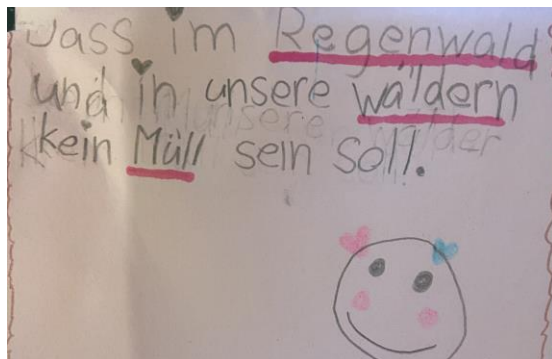 Dass im Regenwald
und in unsere wäldern
kein Müll sein soll.